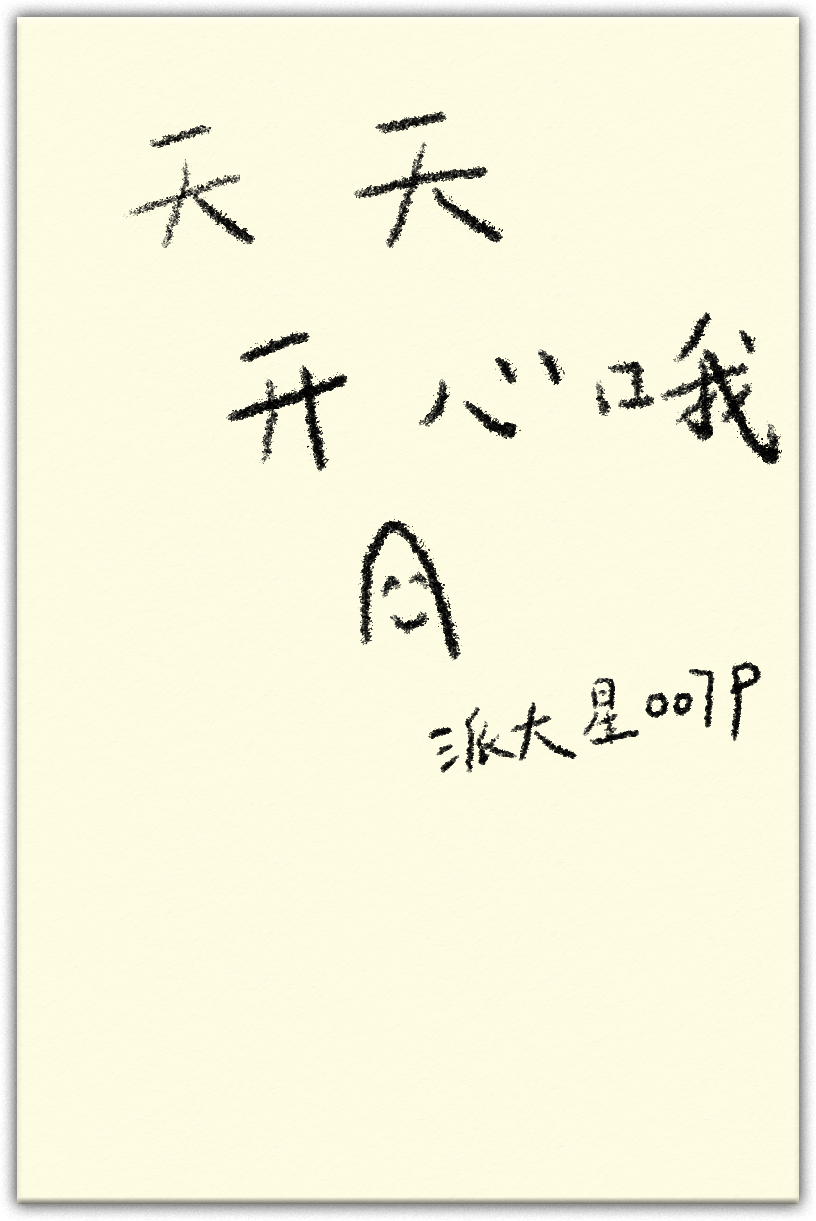 天天
开心哦
派大星007P